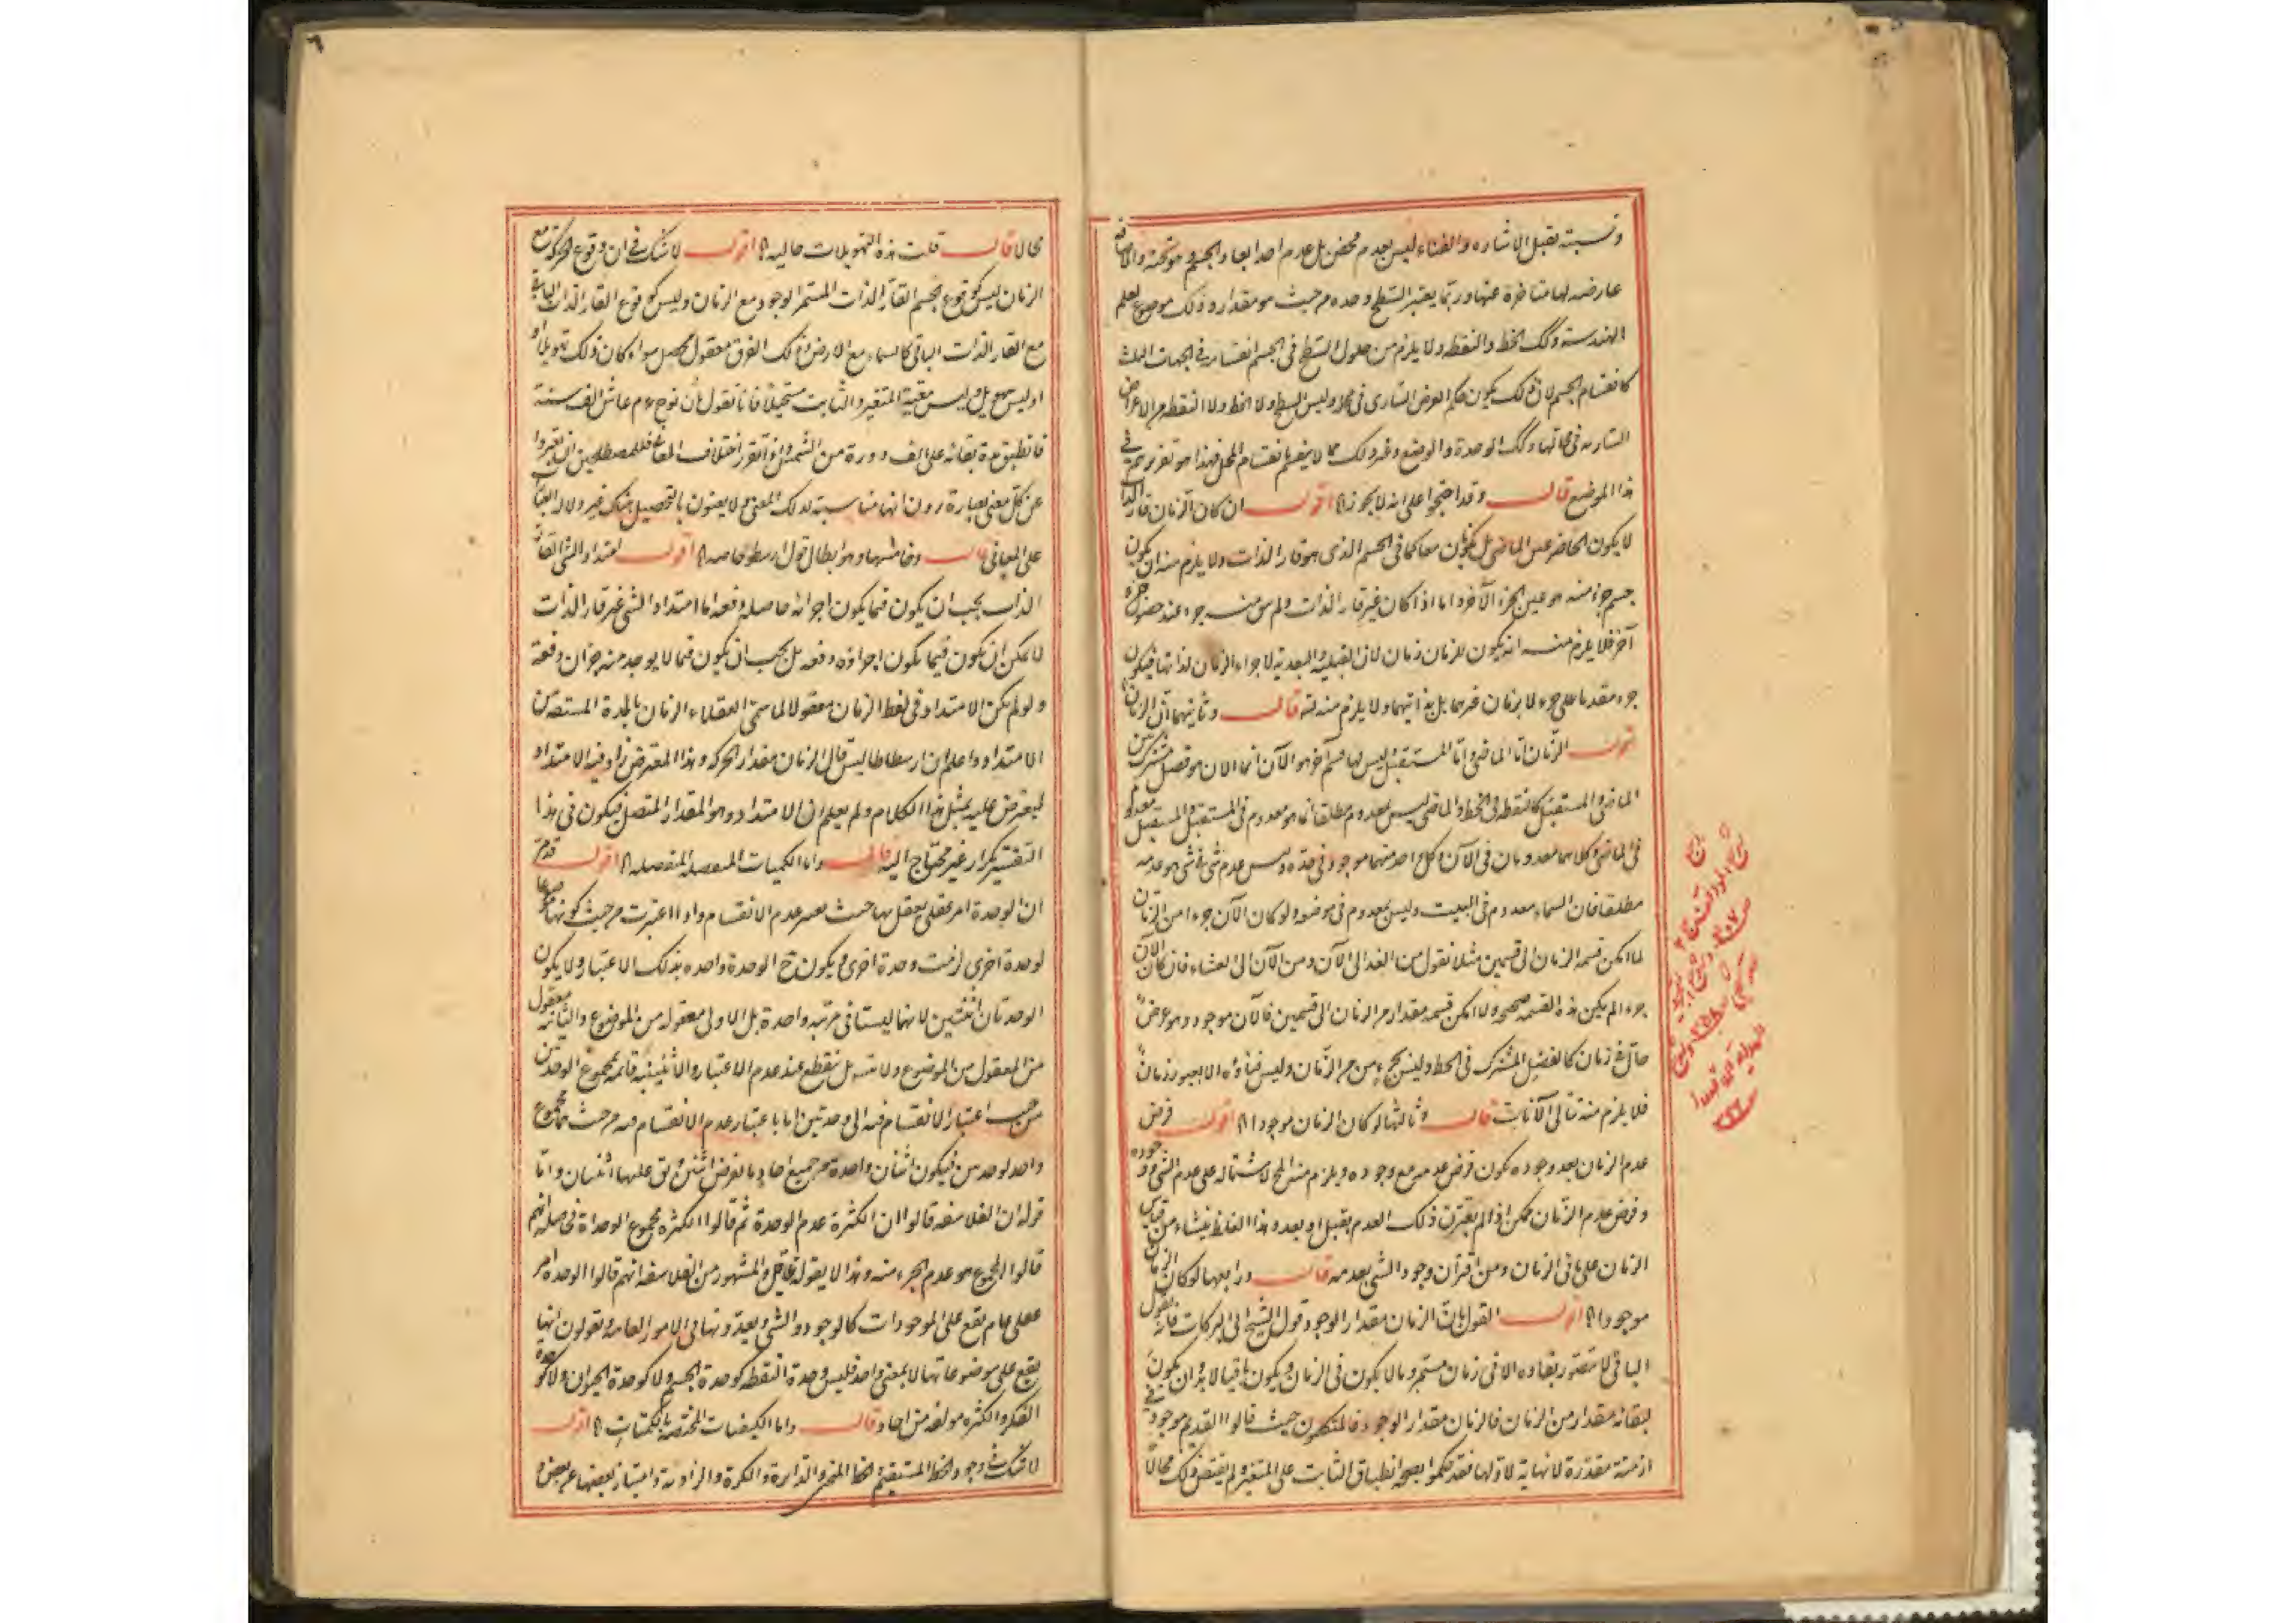 ونسبته تقبل الاشاره والفناء ليس بعدم محض بل عدم احد ابعاد الجسم وتحته والاضافه
عارضه لها متاخرة عنها وربما يعتبر السطح وحده من حيث هو مقدار وذلك موضوع لعلم
الهندسة وكك الخط والنقطه ولا يلزم من حلول السطح فى الجسم انقسامه فى الجهات الثلث
كانقسام الجسم لان ذلك يكون حكم العرض السارى فى محله وليس السطح ولا الخط ولا النقطه من الاعراض
الساريه فى محالها وكك الوحدة والوضع وغير ذلك مما لا ينقسم بانقسام المحل فهذا هو تقريرهم فى
هذا الموضع قال وقد احتجوا على انه لا يجوز اه اقول ان كان الزمان قار الذات
لا يكون الحاضر عين الماضى بل يكونان معا كما فى الجسم الذى هو قار الذات ولا يلزم منه ان يكون
جسم جزء منه هو عين الجزء الآخر واما اذا كان غير قار الذات ولم يبق منه جزء عند حضور جزء
آخر فلا يلزم منه انه يكون للزمان زمان لان القبلية والبعدية لاجزاء الزمان لذاتها فيكون
جزء مقدما على جزء لا بزمان غيرهما بل بذاتيهما ولا يلزم منه تس قال وثانيهما ان الزمان
اقول الزمان اما الماضى واما المستقبل ليس لها قسم آخر هو الآن انما الان هو فصل مشترك بين
الماضى والمستقبل كالنقطه فى الخط والماضى ليس بمعدوم مطلقا انما هو معدوم فى المستقبل والمستقبل معدوم
فى الماضى وكلاهما معدومان فى الآن وكل احد منهما موجود فى حده وليس عدم شئ فى شئ هو عدمه
مطلقا فان السماء معدوم فى البيت وليس بمعدوم فى موضعه ولو كان الآن جزءا من الزمان
لما امكن قسمة الزمان الى قسمين مثلا نقول من الغد الى الآن ومن الآن الى العشاء فان كان الآن
جزءا لم يكن هذه القسمه صحيحه ولا امكن قسمه مقدار من الزمان الى قسمين فالآن موجود وهو عرض
حال فى زمان كالفصل المشترك فى الخط وليس بجزء من الزمان وليس فناؤه الا بعبور زمان
فلا يلزم منه تتالى الآنات قال وثالثها لو كان الزمان موجودا اه اقول فرض
عدم الزمان بعد وجوده يكون فرض عدمه مع وجوده ويلزم منه المح لاشتماله على عدم الشئ ووجوده
وفرض عدم الزمان ممكن اذا لم يقترن ذلك العدم بقبل او بعد وهذا الغلط ينشاء من قياس
الزمان على ما فى الزمان ومن اقتران وجود الشئ بعدمه قال ورابعها لو كان الزمان
موجودا اه اقول القول بان الزمان مقدار الوجود قول الشيخ ابى البركات فانه يقول
الباقى لا يتصور بقاؤه الا فى زمان مستمر وما لا يكون فى الزمان ويكون باقيا لا بد ان يكون
لبقائه مقدار من الزمان فالزمان مقدار الوجود فالمتكلمون حيث قالوا القديم موجود فى
ازمنة مقدرة لا نهاية لاولها فقد حكموا بصحة انطباق الثابت على المتغير ولم يقتض ذلك محالا
محالا قال قلت هذه التهويلات خاليه اه اقول لا شك فى ان وقوع الحركة مع
الزمان ليس كوقوع الجسم القار الذات المستمر الوجود مع الزمان وليس كوقوع القار الذات الباقى
مع القار الذات الباقى كالسماء مع الارض وذلك الفرق معقول محصل سواء كان ذلك تهويلا او
او ليس بتهويل وليس معية المتغير والثابت مستحيلا فانا نقول ان نوح ع م عاش الف سنة
فانطبق مدة بقائه على الف دورة من الشمس واذا تقرر اختلاف المعانى فللمصطلحين ان يعبروا
عن كل معنى بعبارة يرون انها مناسبة لذلك المعنى ولا يعنون بالتحصيل هناك غير دلالة العبارة
على المعانى قال وخامسها وهو ابطال قول ارسطو خاصه اه اقول امتداد الشئ القار
الذات يجب ان يكون فيما يكون اجزائه حاصله دفعه اما امتداد الشئ غير قار الذات
لا يمكن ان يكون فيما يكون اجزاؤه دفعه بل يجب ان يكون فيما لا يوجد منه جزءان دفعة
ولو لم يكن الامتداد فى لفظ الزمان معقولا لما سمى العقلاء الزمان بالمدة المستصحب
الامتداد واعلم ان ارسطاطاليس قال الزمان مقدار الحركه وهذا المعترض زاد فيه الامتداد
ليعترض عليه بمثل هذا الكلام ولم يعلم ان الامتداد وهو المقدار المتصل فيكون فى هذا
التفسير تكرار غير محتاج اليه قال واما الكميات المنفصله اه اقول
ان الوحدة امر عقلى يعقل بها حيث يعتبر عدم الانقسام واذا اعتبرت من حيث كونها موضوعا
لوحدة اخرى لزمت وحدة اخرى ويكون ح الوحدة واحده بذلك الاعتبار ولا يكون
الوحدتان اثنتين لانهما ليستا فى مرتبه واحدة بل الاولى معقوله من الموضوع والثانيه معقوله
من المعقول من الموضوع ولا تتس بل ينقطع عند عدم الاعتبار والاثنينيه قائمه بمجموع الوحدتين
من حيث اعتبار الانقسام فيه الى وحدتين اما باعتبار عدم الانقسام فيه من حيث مجموع
واحد لوحدتين فيكون اثنان واحدة من جميع احاد ما يفرض اثنين يق عليها اثنان واما
قوله ان الفلاسفه قالوا ان الكثرة عدم الوحدة ثم قالوا الكثره مجموع الوحداة فحاصله انهم
قالوا المجموع هو عدم الجزء منه وهذا لا يقوله عاقل والمشهور من الفلاسفه انهم قالوا الوحدة امر
عقلى عام يقع على الموجودات كالوجود والشئ ويعدونها فى الامور العامه ويقولون انها
يقع على موضوعاتها لا بمعنى واحد فليس وحدة النقطه كوحدة الجسم ولا كوحدة الحيوان ولا كوحدة
العسكر والكثره مولفه من احاد قال واما الكيفيات المختصة بالكميات اه اقول
لا شك فى وجود الخط المستقيم والخط المنحنى والدائرة والكرة والزاوية وامتياز بعضها عن بعض